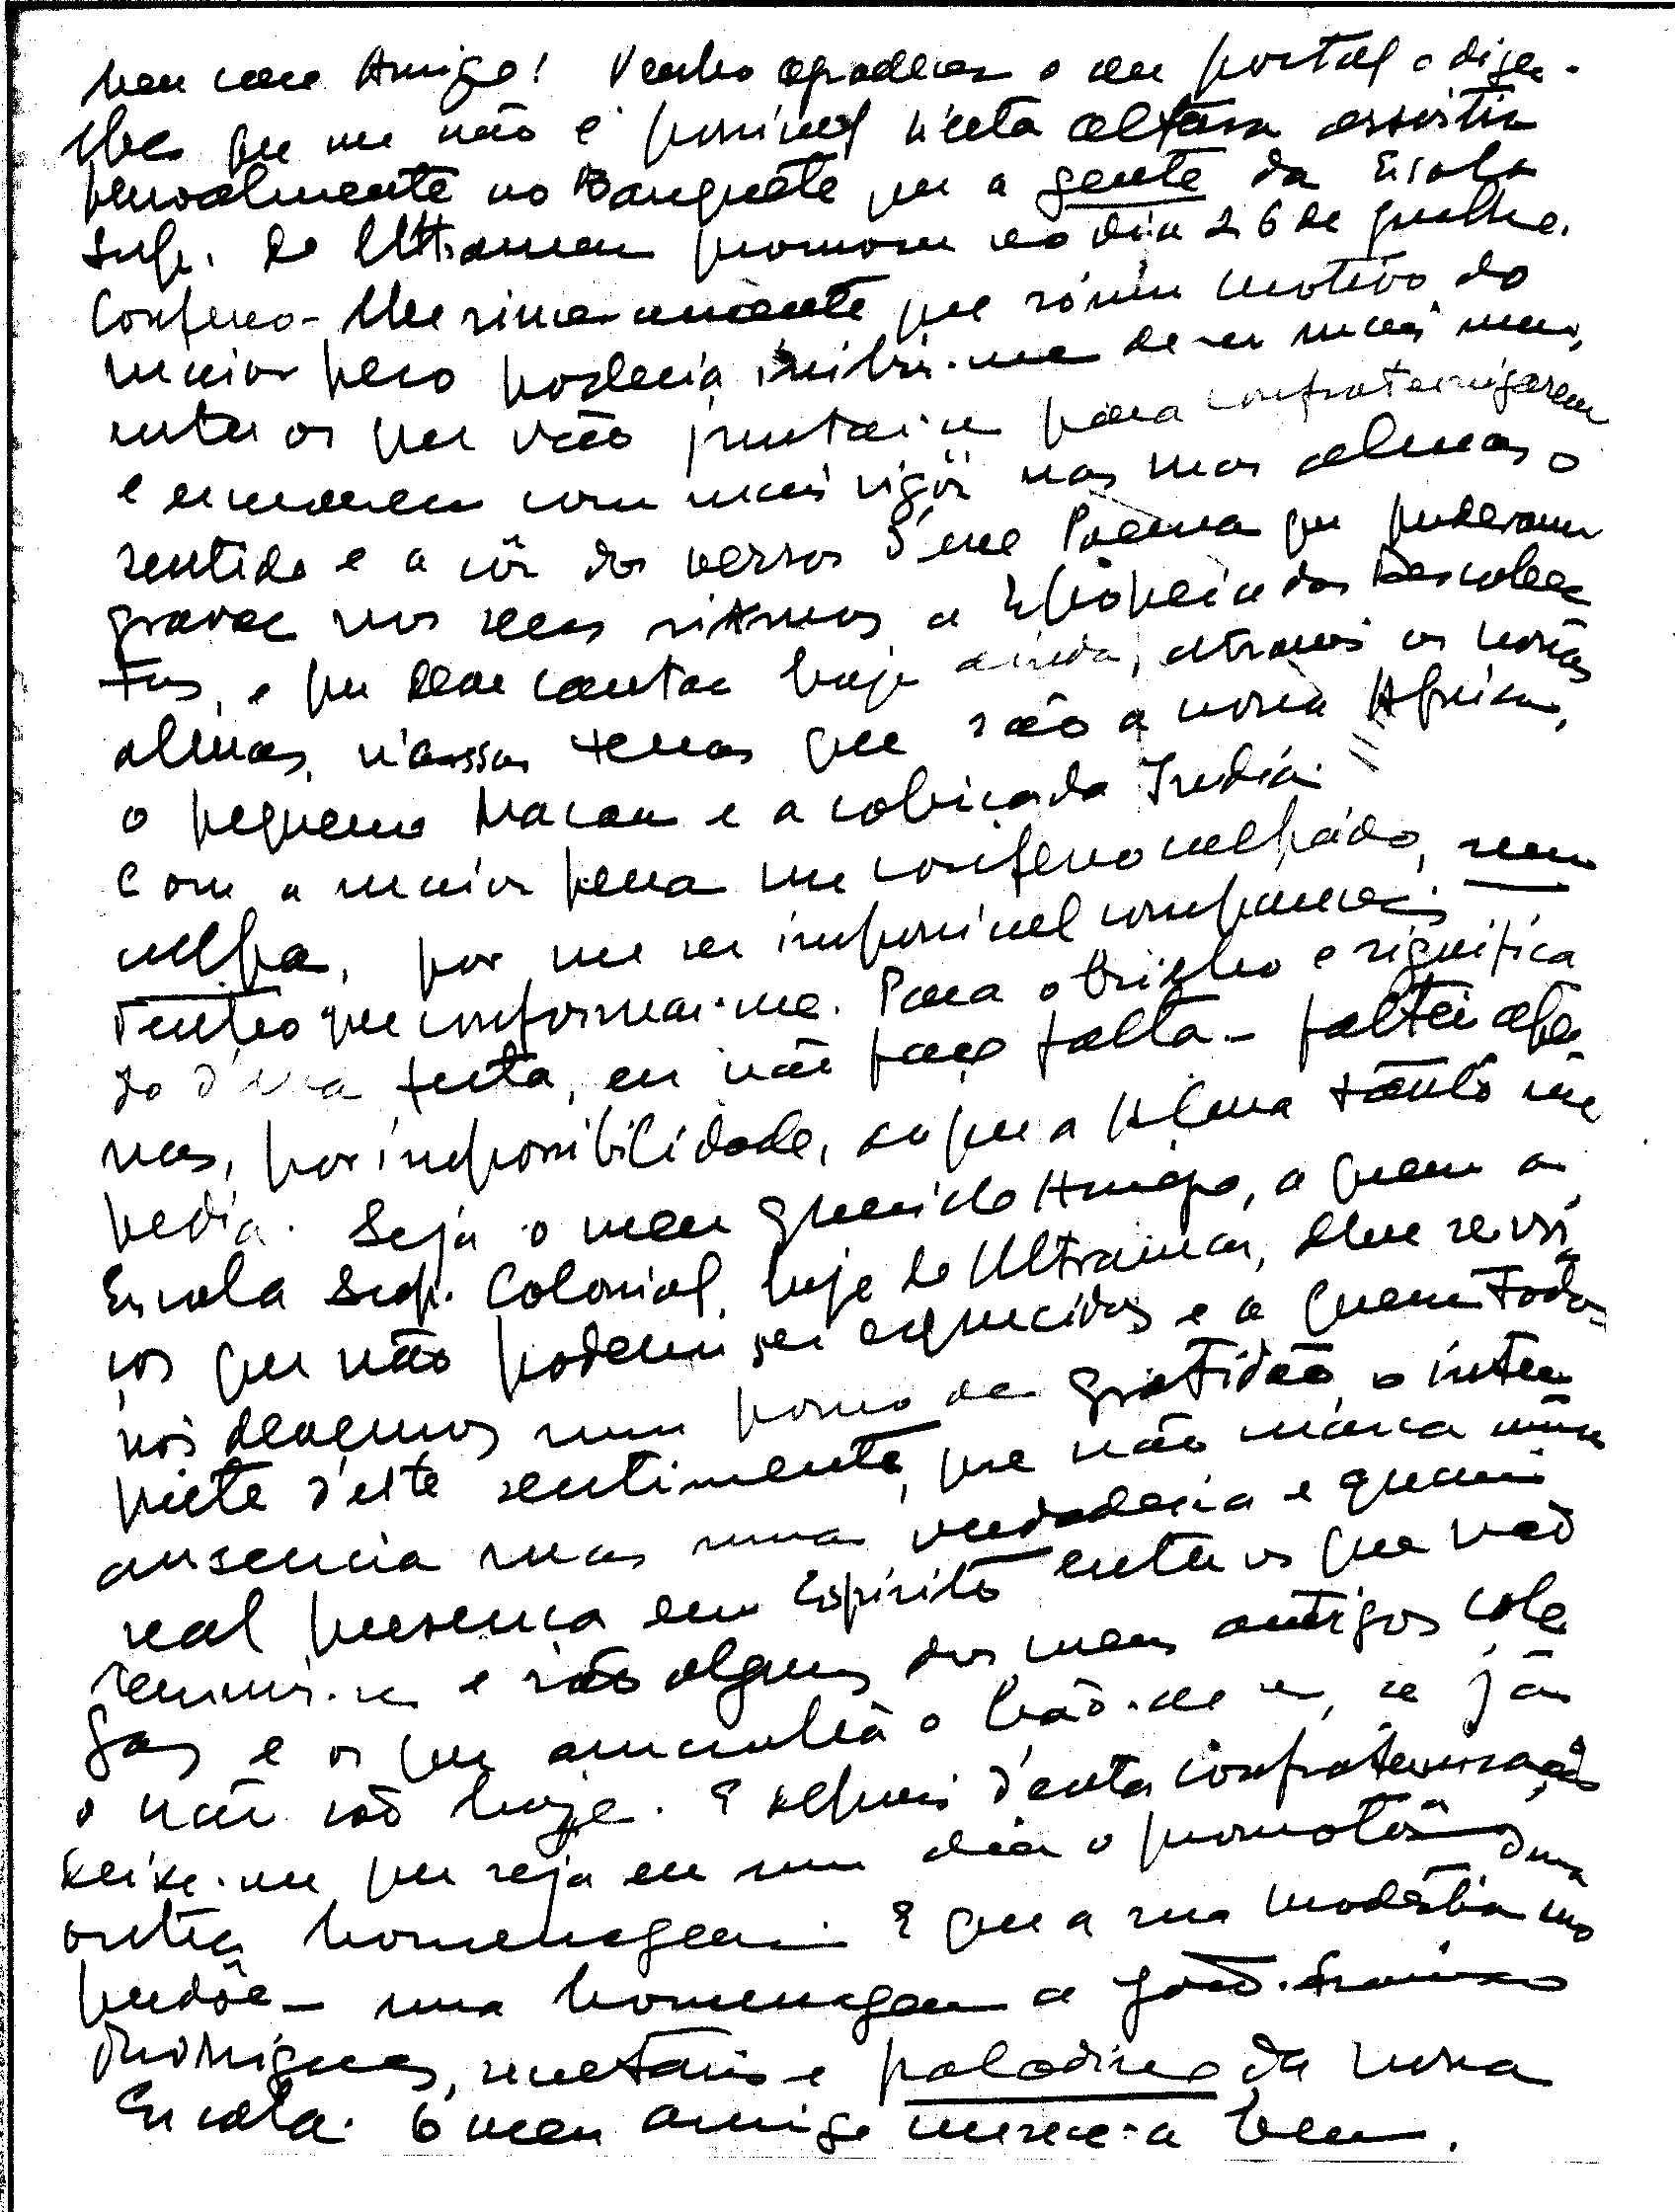 Meu caro Amigo! Venho agradecer o seu postal e dizer-
lhe que me não é possível n'esta altura assistir
pessoalmente ao Banquete que a gente da Escola
Sup. do Ultramar promove no dia 26 de Julho.
Confesso-lhe sinceramente que só um motivo do
maior peso poderia inibir-me de ser mais um,
entre os que vão juntar-se para confraternizarem
e encarecer com mais vigôr nas suas almas o
sentido e a côr dos versos d'esse Poema que puderam
gravar nos seus ritmos a Epopeia das Descober
tas, e que deve cantar hoje ainda, através as nossas
almas, n'essas terras que são a nossa Africa,
o pequeno Macau e a cobiçada India.
Com a maior pena me confesso culpado, sem
culpa, por me ser impossível comparecer.
Tenho que conformar-me. Para o brilho e significa
do d'essa festa, eu não faço falta - faltei ape
nas, por impossibilidade, ao que a Alma tanto me
pedia. Seja o meu querido Amigo, a quem a
Escola Sup. Colonial, hoje do Ultramar, deve servi
ços que não podem ser esquecidos e a quem todos
nós devemos um pouco de gratidão, o intér
prete d'este sentimento, que não marca uma
ausencia mas uma verdadeira e quasi
real presença em Espírito entre os que vão
reunir-se e são alguns dos meus antigos cole
gas e os que amanhã o hão-de ser, se já
o não são hoje. E depois d'esta confraternização
deixe-me que seja eu um dia o promotôr duma
outra homenagem. E que a sua modéstia me
perdôe - uma homenagem a João Francisco
Rodrigues, secretário e paladino da nossa
Escola. O meu amigo merece-a bem.